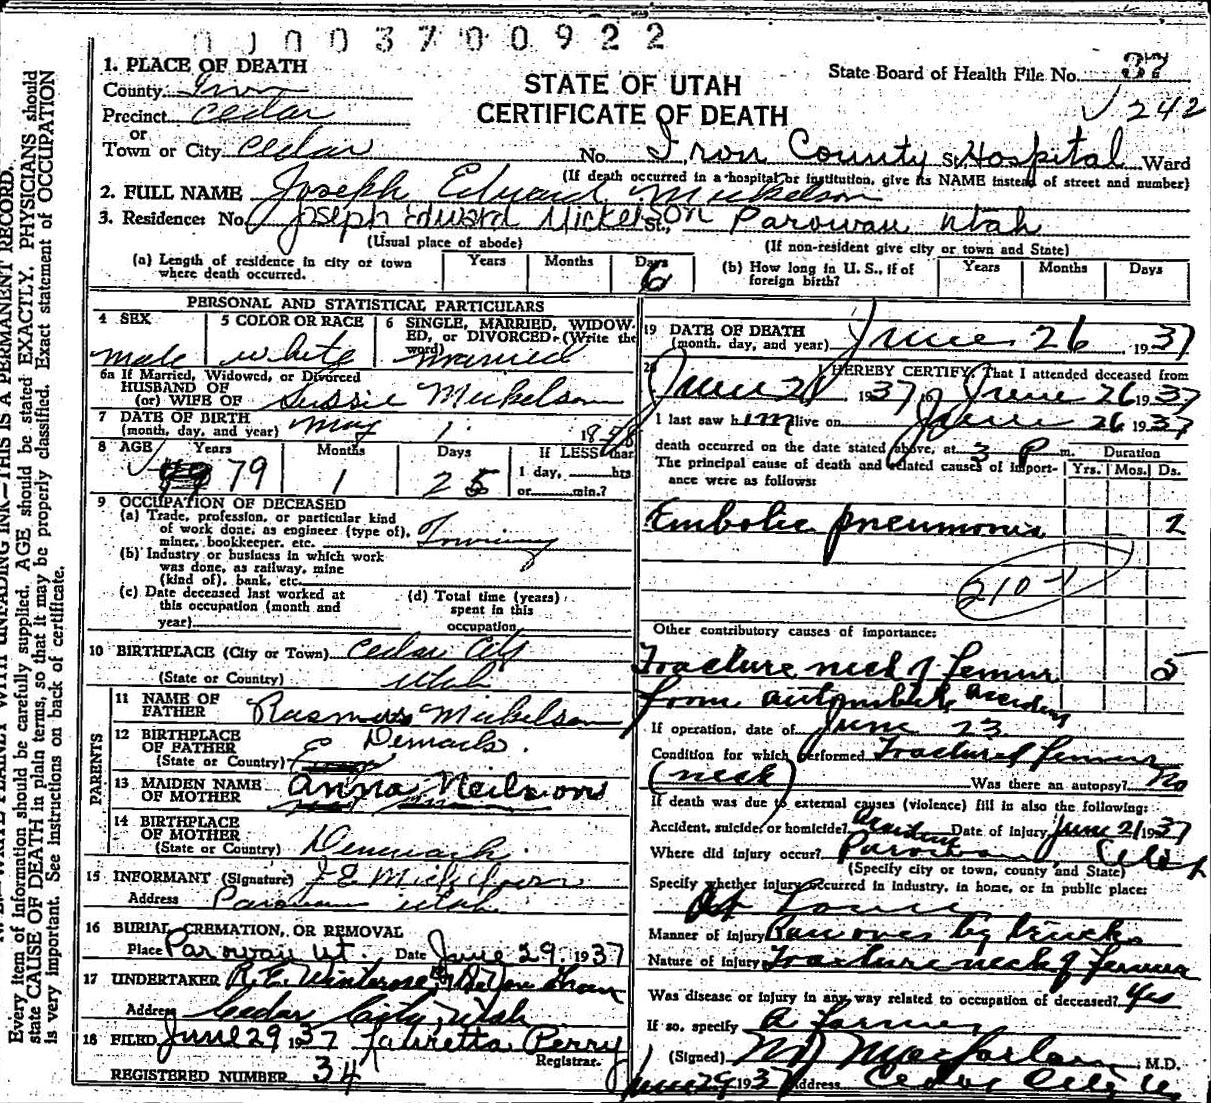 0 J 0 0 3 7 0 0 9 2 2
1. PLACE OF DEATH
County Iron
Precinct Cedar
or
Town or City Cedar
STATE OF UTAH
CERTIFICATE OF DEATH
State Board of Health File No. 37
242
No. Iron County St. Hospital Ward
(If death occurred in a hospital or institution, give its NAME instead of street and number)
2. FULL NAME Joseph Edward Mickelson
3. Residence: No. Joseph Edward Mickelson St., Parowan Utah
(Usual place of abode) (If non-resident give city or town and State)
(a) Length of residence in city or town where death occurred. Years Months Days 6
(b) How long in U. S., if of foreign birth? Years Months Days
PERSONAL AND STATISTICAL PARTICULARS
4 SEX male
5 COLOR OR RACE white
6 SINGLE, MARRIED, WIDOWED, or DIVORCED. (Write the word) married
6a If Married, Widowed, or Divorced
HUSBAND OF
(or) WIFE OF Sussie Mickelson
7 DATE OF BIRTH
(month, day, and year) May 1 1858
8 AGE Years 79 Months 1 Days 25 If LESS than 1 day, hrs. or min.?
9 OCCUPATION OF DECEASED
(a) Trade, profession, or particular kind
of work done, as engineer (type of),
miner, bookkeeper, etc.
(b) Industry or business in which work
was done, as railway, mine
(kind of), bank, etc.
(c) Date deceased last worked at
this occupation (month and
year)
(d) Total time (years)
spent in this
occupation
10 BIRTHPLACE (City or Town) Cedar City
(State or Country) Utah
PARENTS
11 NAME OF
FATHER Rasmus Mickelson
12 BIRTHPLACE
OF FATHER
(State or Country) Denmark
13 MAIDEN NAME
OF MOTHER Anna Neilson
14 BIRTHPLACE
OF MOTHER
(State or Country) Denmark
15 INFORMANT (Signature) J E Mickelson
Address Parowan Utah
16 BURIAL, CREMATION, OR REMOVAL
Place Parowan Ut. Date June 29, 1937
17 UNDERTAKER R. E. Winterose
Address Cedar City, Utah
18 FILED June 29 1937 Perry
Registrar.
REGISTERED NUMBER 34
19 DATE OF DEATH
(month, day, and year) June 26, 1937
20 I HEREBY CERTIFY, That I attended deceased from
June 21 1937 to June 26 1937
I last saw him alive on June 26 1937
death occurred on the date stated above, at 3 P m.
The principal cause of death and related causes of importance were as follows:
Duration
Yrs. Mos. Ds.
Embolic pneumonia 2
210
Other contributory causes of importance:
Fracture neck of femur 5
from automobile accident
If operation, date of June 23
Condition for which performed Fracture of femur
(neck) Was there an autopsy? No
If death was due to external causes (violence) fill in also the following:
Accident, suicide, or homicide? Accident Date of injury June 21 1937
Where did injury occur? Parowan, Utah
(Specify city or town, county and State)
Specify whether injury occurred in industry, in home, or in public place:
Manner of injury Run over by truck
Nature of injury Fracture neck of femur
Was disease or injury in any way related to occupation of deceased? Yes
If so, specify A farmer
(Signed) Macfarlane M.D.
June 29 1937 Address Cedar City U.
WRITE PLAINLY WITH UNFADING INK—THIS IS A PERMANENT RECORD.
Every item of information should be carefully supplied. AGE should be stated EXACTLY. PHYSICIANS should
state CAUSE OF DEATH in plain terms, so that it may be properly classified. Exact statement of OCCUPATION
is very important. See instructions on back of certificate.